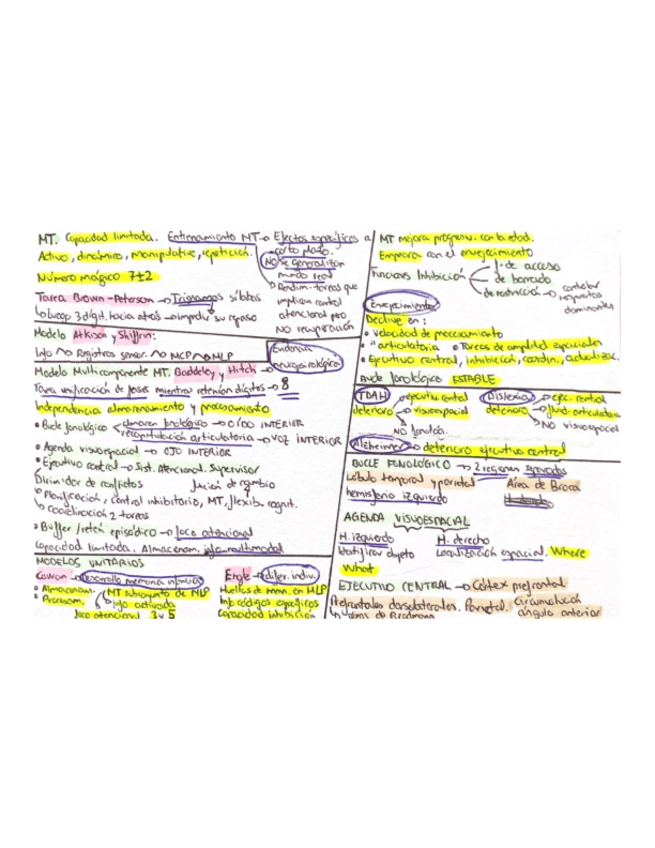 MT. Capacidad limitada. Entrenamiento MT → Efectos específicos a
corto plazo.
Activo, dinámico, manipulativo, repetición.
NO se generalizan
mundo real
Número mágico 7±2
Rendim. tareas que
implican control
atencional pero
NO recuperación
Tarea Brown-Peterson → Trigramas sílabas
↳ luego 3 dígit. hacia atrás → impedir su repaso
Modelo Atkison y Shiffrin:
Info → Registros sensor. → MCP → MLP
Evidencia
neuropsicológica
Modelo Multicomponente MT. Baddeley y Hitch →
Tarea verificación de frases mientras retenían dígitos → 8
Independencia almacenamiento y procesamiento
• Bucle fonológico
almacén fonológico → OÍDO INTERIOR
recapitulación articulatoria → VOZ INTERIOR
• Agenda visuoespacial → OJO INTERIOR
• Ejecutivo central → Sist. Atencional Supervisor
Dirimidor de conflictos
función de cambio
↳ Planificación, control inhibitorio, MT, flexib. cognit.
↳ Coordinación 2 tareas
• Buffer /retén episódico → foco atencional
Capacidad limitada. Almacenam. info multimodal
MODELOS UNITARIOS
Cowan →
• Almacenam.
• Procesam.
MT subconjunto de MLP
info activada
foco atencional 3 y 5
Engle → difer. indiv.
Huellas de mem. en MLP
Info códigos específicos
Capacidad inhibición
MT mejora progresiv. con la edad.
Empeora con el envejecimiento
Funciones Inhibición
f. de acceso
de borrado
de restricción → controlar
respuestas
dominantes
Envejecimiento
Declive en:
• velocidad de procesamiento
• " articulatoria • Tareas de amplitud espaciales
• Ejecutivo central, inhibición, coordin., actualizac.
Bucle fonológico ESTABLE
TDAH
deterioro
ejecutivo central
visuoespacial
NO fonológ.
Dislexia
deterioro
ejec. central
fonol. articulatorio
NO visuoespacial
Alzheimer → deterioro ejecutivo central
BUCLE FONOLÓGICO → 2 regiones separadas
Lóbulo temporal y parietal
hemisferio izquierdo
Área de Broca
AGENDA VISUOESPACIAL
H. izquierdo
Identificar objeto
What
H. derecho
Localización espacial. Where
EJECUTIVO CENTRAL → Córtex prefrontal
Prefrontales dorsolaterales. Parietal. Circunvolución
ángulo anterior
áreas de Brodmann